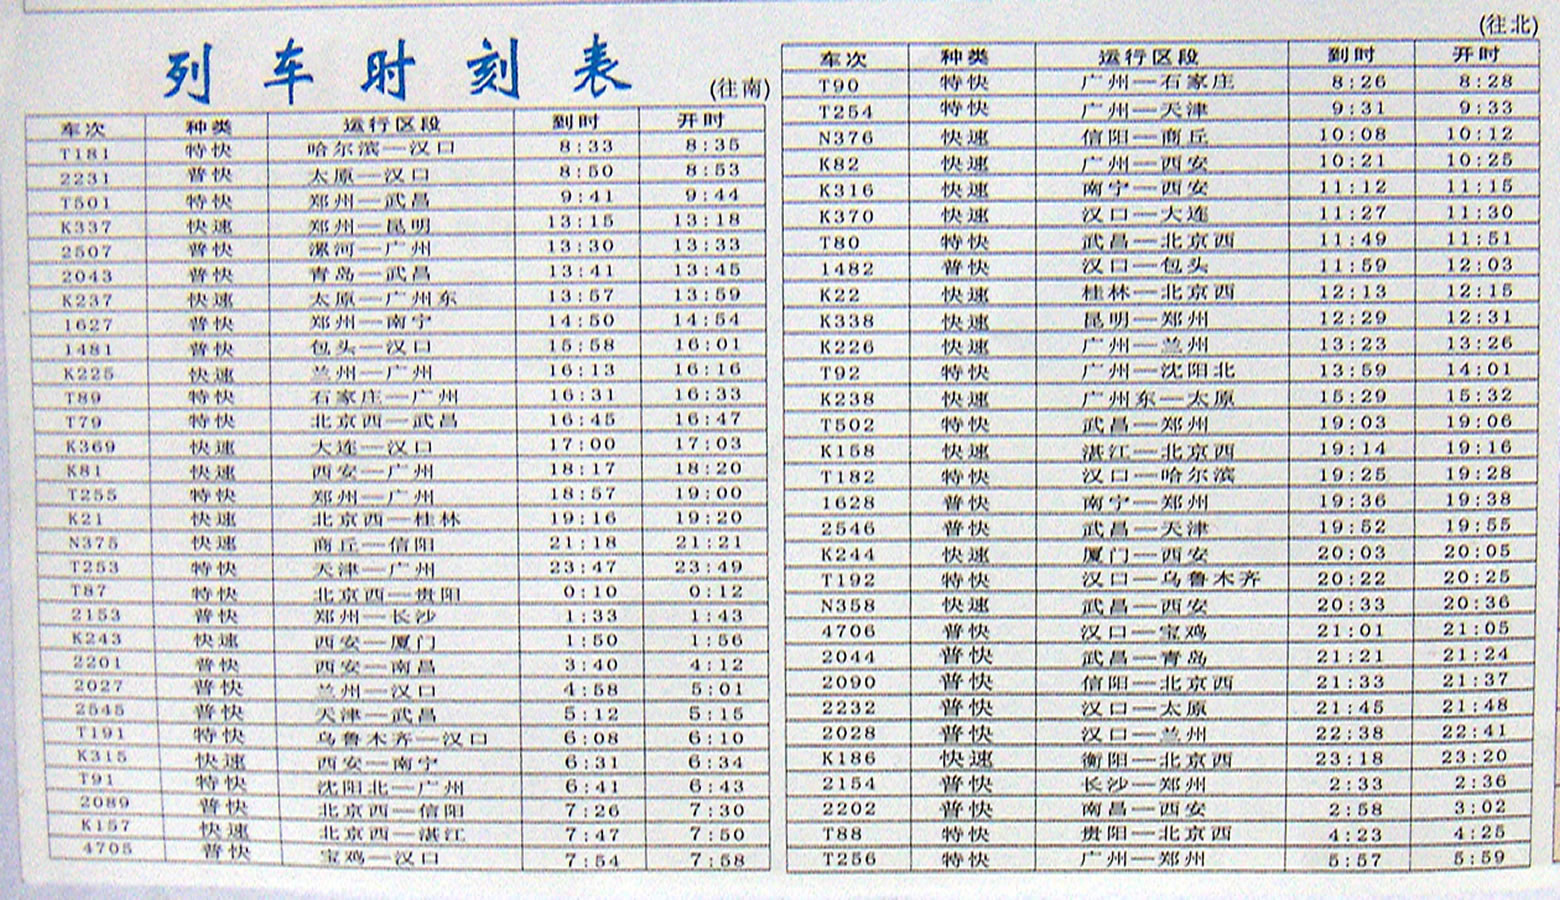 列车时刻表
(往南)
车次 种类 运行区段 到时 开时
T181 特快 哈尔滨—汉口 8:33 8:35
2231 普快 太原—汉口 8:50 8:53
T501 特快 郑州—武昌 9:41 9:44
K337 快速 郑州—昆明 13:15 13:18
2507 普快 漯河—广州 13:30 13:33
2043 普快 青岛—武昌 13:41 13:45
K237 快速 太原—广州东 13:57 13:59
1627 普快 郑州—南宁 14:50 14:54
1481 普快 包头—汉口 15:58 16:01
K225 快速 兰州—广州 16:13 16:16
T89 特快 石家庄—广州 16:31 16:33
T79 特快 北京西—武昌 16:45 16:47
K369 快速 大连—汉口 17:00 17:03
K81 快速 西安—广州 18:17 18:20
T255 特快 郑州—广州 18:57 19:00
K21 快速 北京西—桂林 19:16 19:20
N375 快速 商丘—信阳 21:18 21:21
T253 特快 天津—广州 23:47 23:49
T87 特快 北京西—贵阳 0:10 0:12
2153 普快 郑州—长沙 1:33 1:43
K243 快速 西安—厦门 1:50 1:56
2201 普快 西安—南昌 3:40 4:12
2027 普快 兰州—汉口 4:58 5:01
2545 普快 天津—武昌 5:12 5:15
T191 特快 乌鲁木齐—汉口 6:08 6:10
K315 快速 西安—南宁 6:31 6:34
T91 特快 沈阳北—广州 6:41 6:43
2089 普快 北京西—信阳 7:26 7:30
K157 快速 北京西—湛江 7:47 7:50
4705 普快 宝鸡—汉口 7:54 7:58
(往北)
车次 种类 运行区段 到时 开时
T90 特快 广州—石家庄 8:26 8:28
T254 特快 广州—天津 9:31 9:33
N376 快速 信阳—商丘 10:08 10:12
K82 快速 广州—西安 10:21 10:25
K316 快速 南宁—西安 11:12 11:15
K370 快速 汉口—大连 11:27 11:30
T80 特快 武昌—北京西 11:49 11:51
1482 普快 汉口—包头 11:59 12:03
K22 快速 桂林—北京西 12:13 12:15
K338 快速 昆明—郑州 12:29 12:31
K226 快速 广州—兰州 13:23 13:26
T92 特快 广州—沈阳北 13:59 14:01
K238 快速 广州东—太原 15:29 15:32
T502 特快 武昌—郑州 19:03 19:06
K158 快速 湛江—北京西 19:14 19:16
T182 特快 汉口—哈尔滨 19:25 19:28
1628 普快 南宁—郑州 19:36 19:38
2546 普快 武昌—天津 19:52 19:55
K244 快速 厦门—西安 20:03 20:05
T192 特快 汉口—乌鲁木齐 20:22 20:25
N358 快速 武昌—西安 20:33 20:36
4706 普快 汉口—宝鸡 21:01 21:05
2044 普快 武昌—青岛 21:21 21:24
2090 普快 信阳—北京西 21:33 21:37
2232 普快 汉口—太原 21:45 21:48
2028 普快 汉口—兰州 22:38 22:41
K186 快速 衡阳—北京西 23:18 23:20
2154 普快 长沙—郑州 2:33 2:36
2202 普快 南昌—西安 2:58 3:02
T88 特快 贵阳—北京西 4:23 4:25
T256 特快 广州—郑州 5:57 5:59